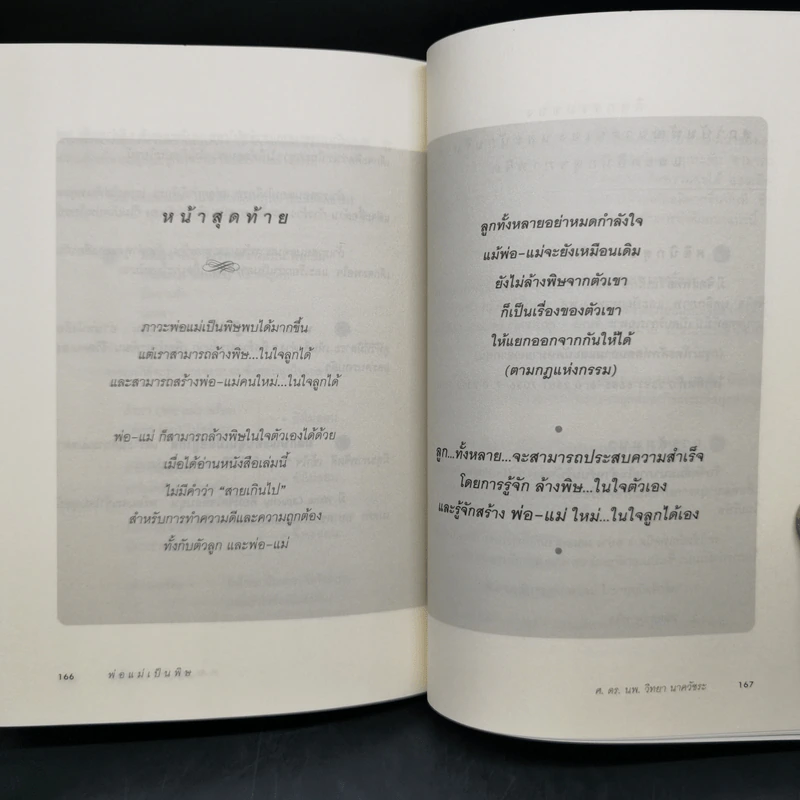 หน้าสุดท้าย
ภาวะพ่อแม่เป็นพิษพบได้มากขึ้น
แต่เราสามารถล้างพิษ...ในใจลูกได้
และสามารถสร้างพ่อ-แม่คนใหม่...ในใจลูกได้
พ่อ-แม่ ก็สามารถล้างพิษในใจตัวเองได้ด้วย
เมื่อได้อ่านหนังสือเล่มนี้
ไม่มีคำว่า “สายเกินไป”
สำหรับการทำความดีและความถูกต้อง
ทั้งกับตัวลูก และพ่อ-แม่
166 พ่อแม่เป็นพิษ
ลูกทั้งหลายอย่าหมดกำลังใจ
แม้พ่อ-แม่จะยังเหมือนเดิม
ยังไม่ล้างพิษจากตัวเขา
ก็เป็นเรื่องของตัวเขา
ให้แยกออกจากกันให้ได้
(ตามกฎแห่งกรรม)
ลูก...ทั้งหลาย...จะสามารถประสบความสำเร็จ
โดยการรู้จัก ล้างพิษ...ในใจตัวเอง
และรู้จักสร้าง พ่อ-แม่ ใหม่...ในใจลูกได้เอง
ศ. ดร. นพ. วิทยา นาควัชระ 167